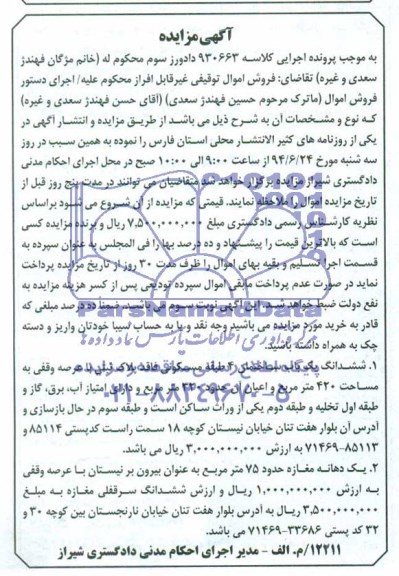 آگهی مزایده
به موجب پرونده اجرایی کلاسه ۹۳۰۶۶۳ دادورز سوم محکوم له (خانم مژگان فهندژ
سعدی و غیره) تقاضای: فروش اموال توقیفی غیرقابل افراز محکوم علیه/ اجرای دستور
فروش اموال (ماترک مرحوم حسین فهندژ سعدی) (آقای حسن فهندژ سعدی و غیره)
که نوع و مشخصات آن به شرح ذیل می‌باشد از طریق مزایده و انتشار آگهی در
یکی از روزنامه های کثیر الانتشار محلی استان فارس را نموده به همین سبب در روز
سه شنبه مورخ ۹۴/۶/۲۴ از ساعت ۹:۰۰ الی ۱۰:۰۰ صبح در محل اجرای احکام مدنی
دادگستری شیراز مزایده برگزار خواهد شد متقاضیان می توانند در مدت پنج روز قبل از
تاریخ مزایده اموال را ملاحظه نمایند. قیمتی که مزایده از آن شروع می شود براساس
نظریه کارشناس رسمی دادگستری مبلغ ۷,۵۰۰,۰۰۰,۰۰۰ ریال و برنده مزایده کسی
است که بالاترین قیمت را پیشنهاد و ده درصد بها را فی المجلس به عنوان سپرده به
قسمت اجرا تسلیم و بقیه بهای اموال را ظرف مدت ۳۰ روز از تاریخ مزایده پرداخت
نماید در صورت عدم پرداخت مابقی اموال سپرده تودیعی پس از کسر هزینه مزایده به
نفع دولت ضبط خواهد شد. این آگهی نوبت سوم می باشد. ضمناً ده درصد مبلغی که
قادر به خرید مورد مزایده می باشید وجه نقد و یا به حساب سیبا خودتان واریز و دسته
چک به همراه داشته باشید.
۱. ششدانگ یک باب ساختمان ۳ طبقه مسکونی فاقد پلاک ثبتی با عرصه وقفی به
مساحت ۴۲۰ متر مربع و اعیان آن حدود ۲۲۰ متر مربع و دارای امتیاز آب، برق، گاز و
طبقه اول تخلیه و طبقه دوم یکی از وراث ساکن است و طبقه سوم در حال بازسازی و
آدرس آن بلوار هفت تنان خیابان نیستان کوچه ۱۸ سمت راست کدپستی ۸۵۱۱۴ و
۷۱۴۶۹-۸۵۱۱۳ به ارزش ۳,۰۰۰,۰۰۰,۰۰۰ ریال می باشد.
۲. یک دهانه مغازه حدود ۷۵ متر مربع به عنوان بیرون بر نیستان با عرصه وقفی
به ارزش ۱,۰۰۰,۰۰۰,۰۰۰ ریال و ارزش ششدانگ سرقفلی مغازه به مبلغ
۳,۵۰۰,۰۰۰,۰۰۰ ریال به آدرس بلوار هفت تنان خیابان نارنجستان بین کوچه ۳۰ و
۳۲ کد پستی ۳۳۶۸۶-۷۱۴۶۹ می باشد.
۱۲۲۱۱/م. الف - مدیر اجرای احکام مدنی دادگستری شیراز
ParsNamadData